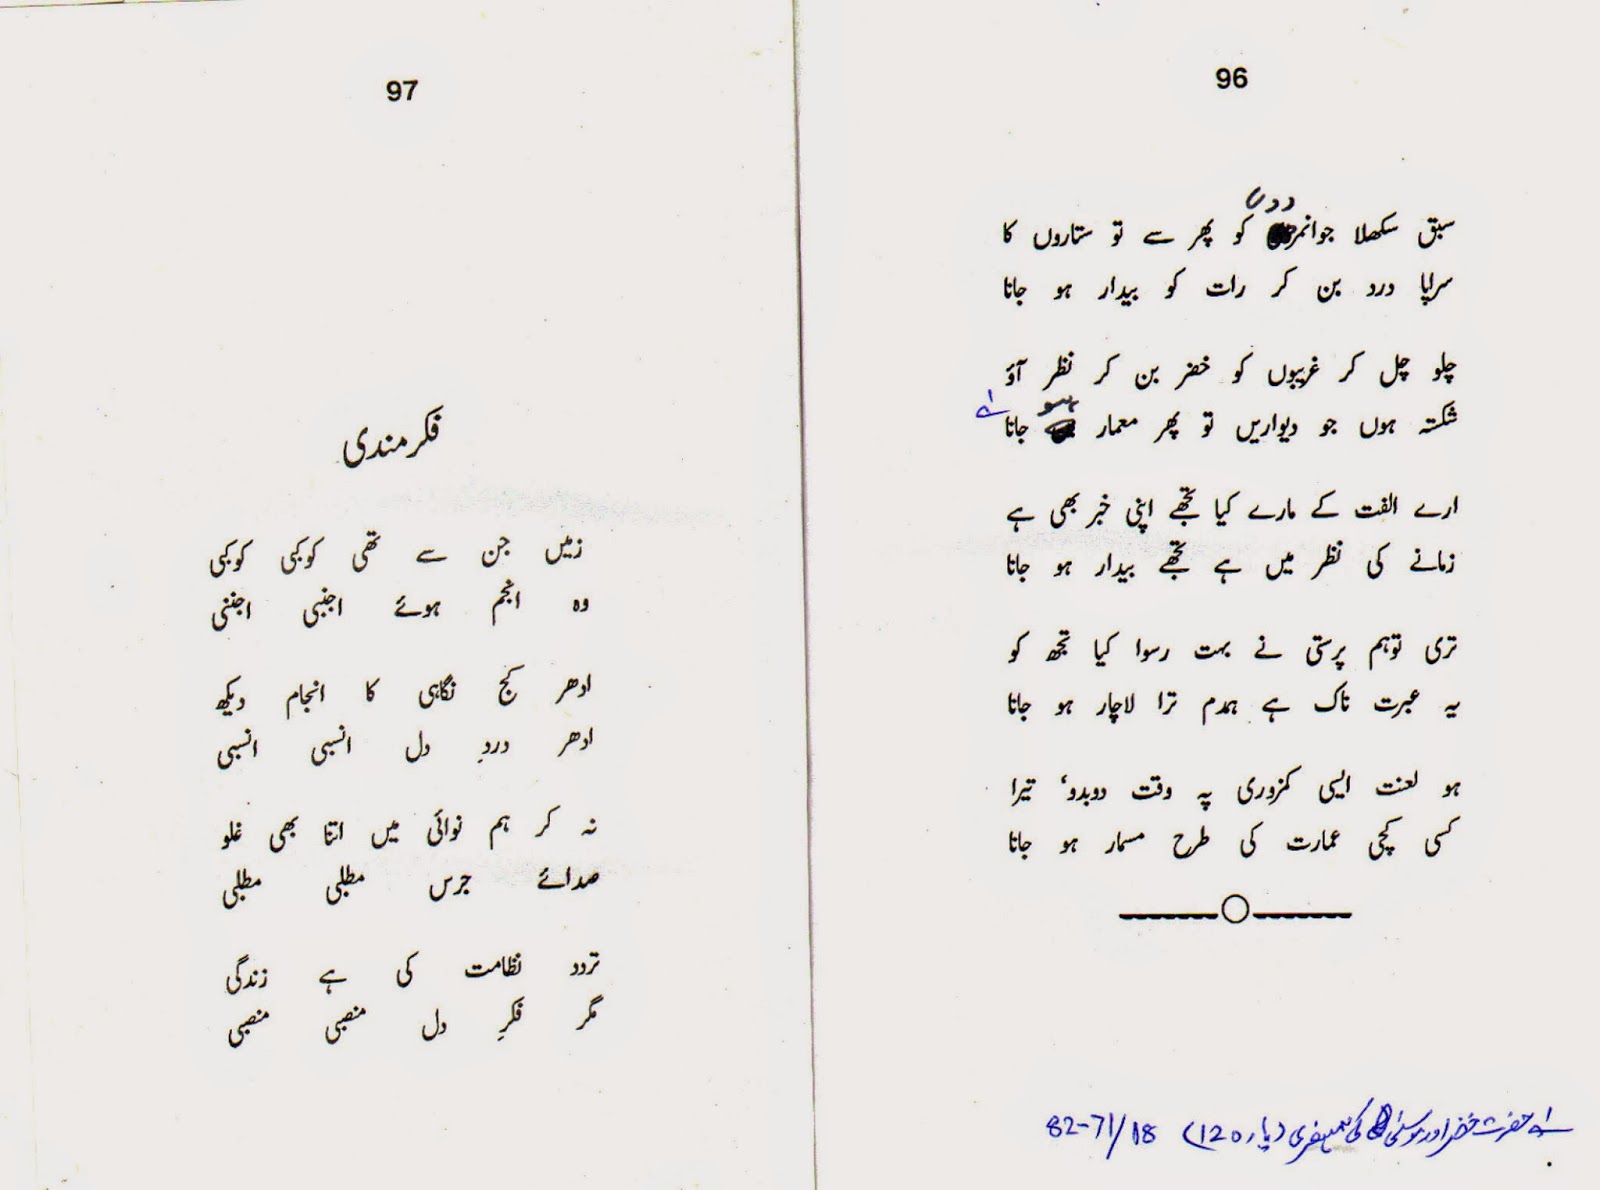 96
سبق سکھلا جوانمردوں کو پھر سے تو ستاروں کا
سراپا درد بن کر رات کو بیدار ہو جانا
چلو چل کر غریبوں کو خضر بن کر نظر آؤ
شکستہ ہوں جو دیواریں تو پھر معمار ہو جانا
ارے الفت کے مارے کیا تجھے اپنی خبر بھی ہے
زمانے کی نظر میں ہے تجھے بیدار ہو جانا
تری توہم پرستی نے بہت رسوا کیا تجھ کو
یہ عبرت ناک ہے ہمدم ترا لاچار ہو جانا
ہو لعنت ایسی کمزوری پہ وقت دوبدو، تیرا
کسی کچی عمارت کی طرح مسمار ہو جانا
حضرت خضر اور موسیٰ کی ہمسفری 82-71/18
97
فکرمندی
زمیں جن سے تھی کوکبی کوکبی
وہ انجم ہوئے اجنبی اجنبی
ادھر کج نگاہی کا انجام دیکھ
ادھر دردِ دل انسبی انسبی
نہ کر ہم نوائی میں اتنا بھی غلو
صدائے جرس مطلبی مطلبی
تردد نظامت کی ہے زندگی
مگر فکرِ دل منصبی منصبی